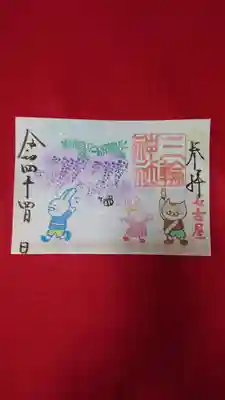 奉拝
名古屋
三輪
神社
令四年四月
日